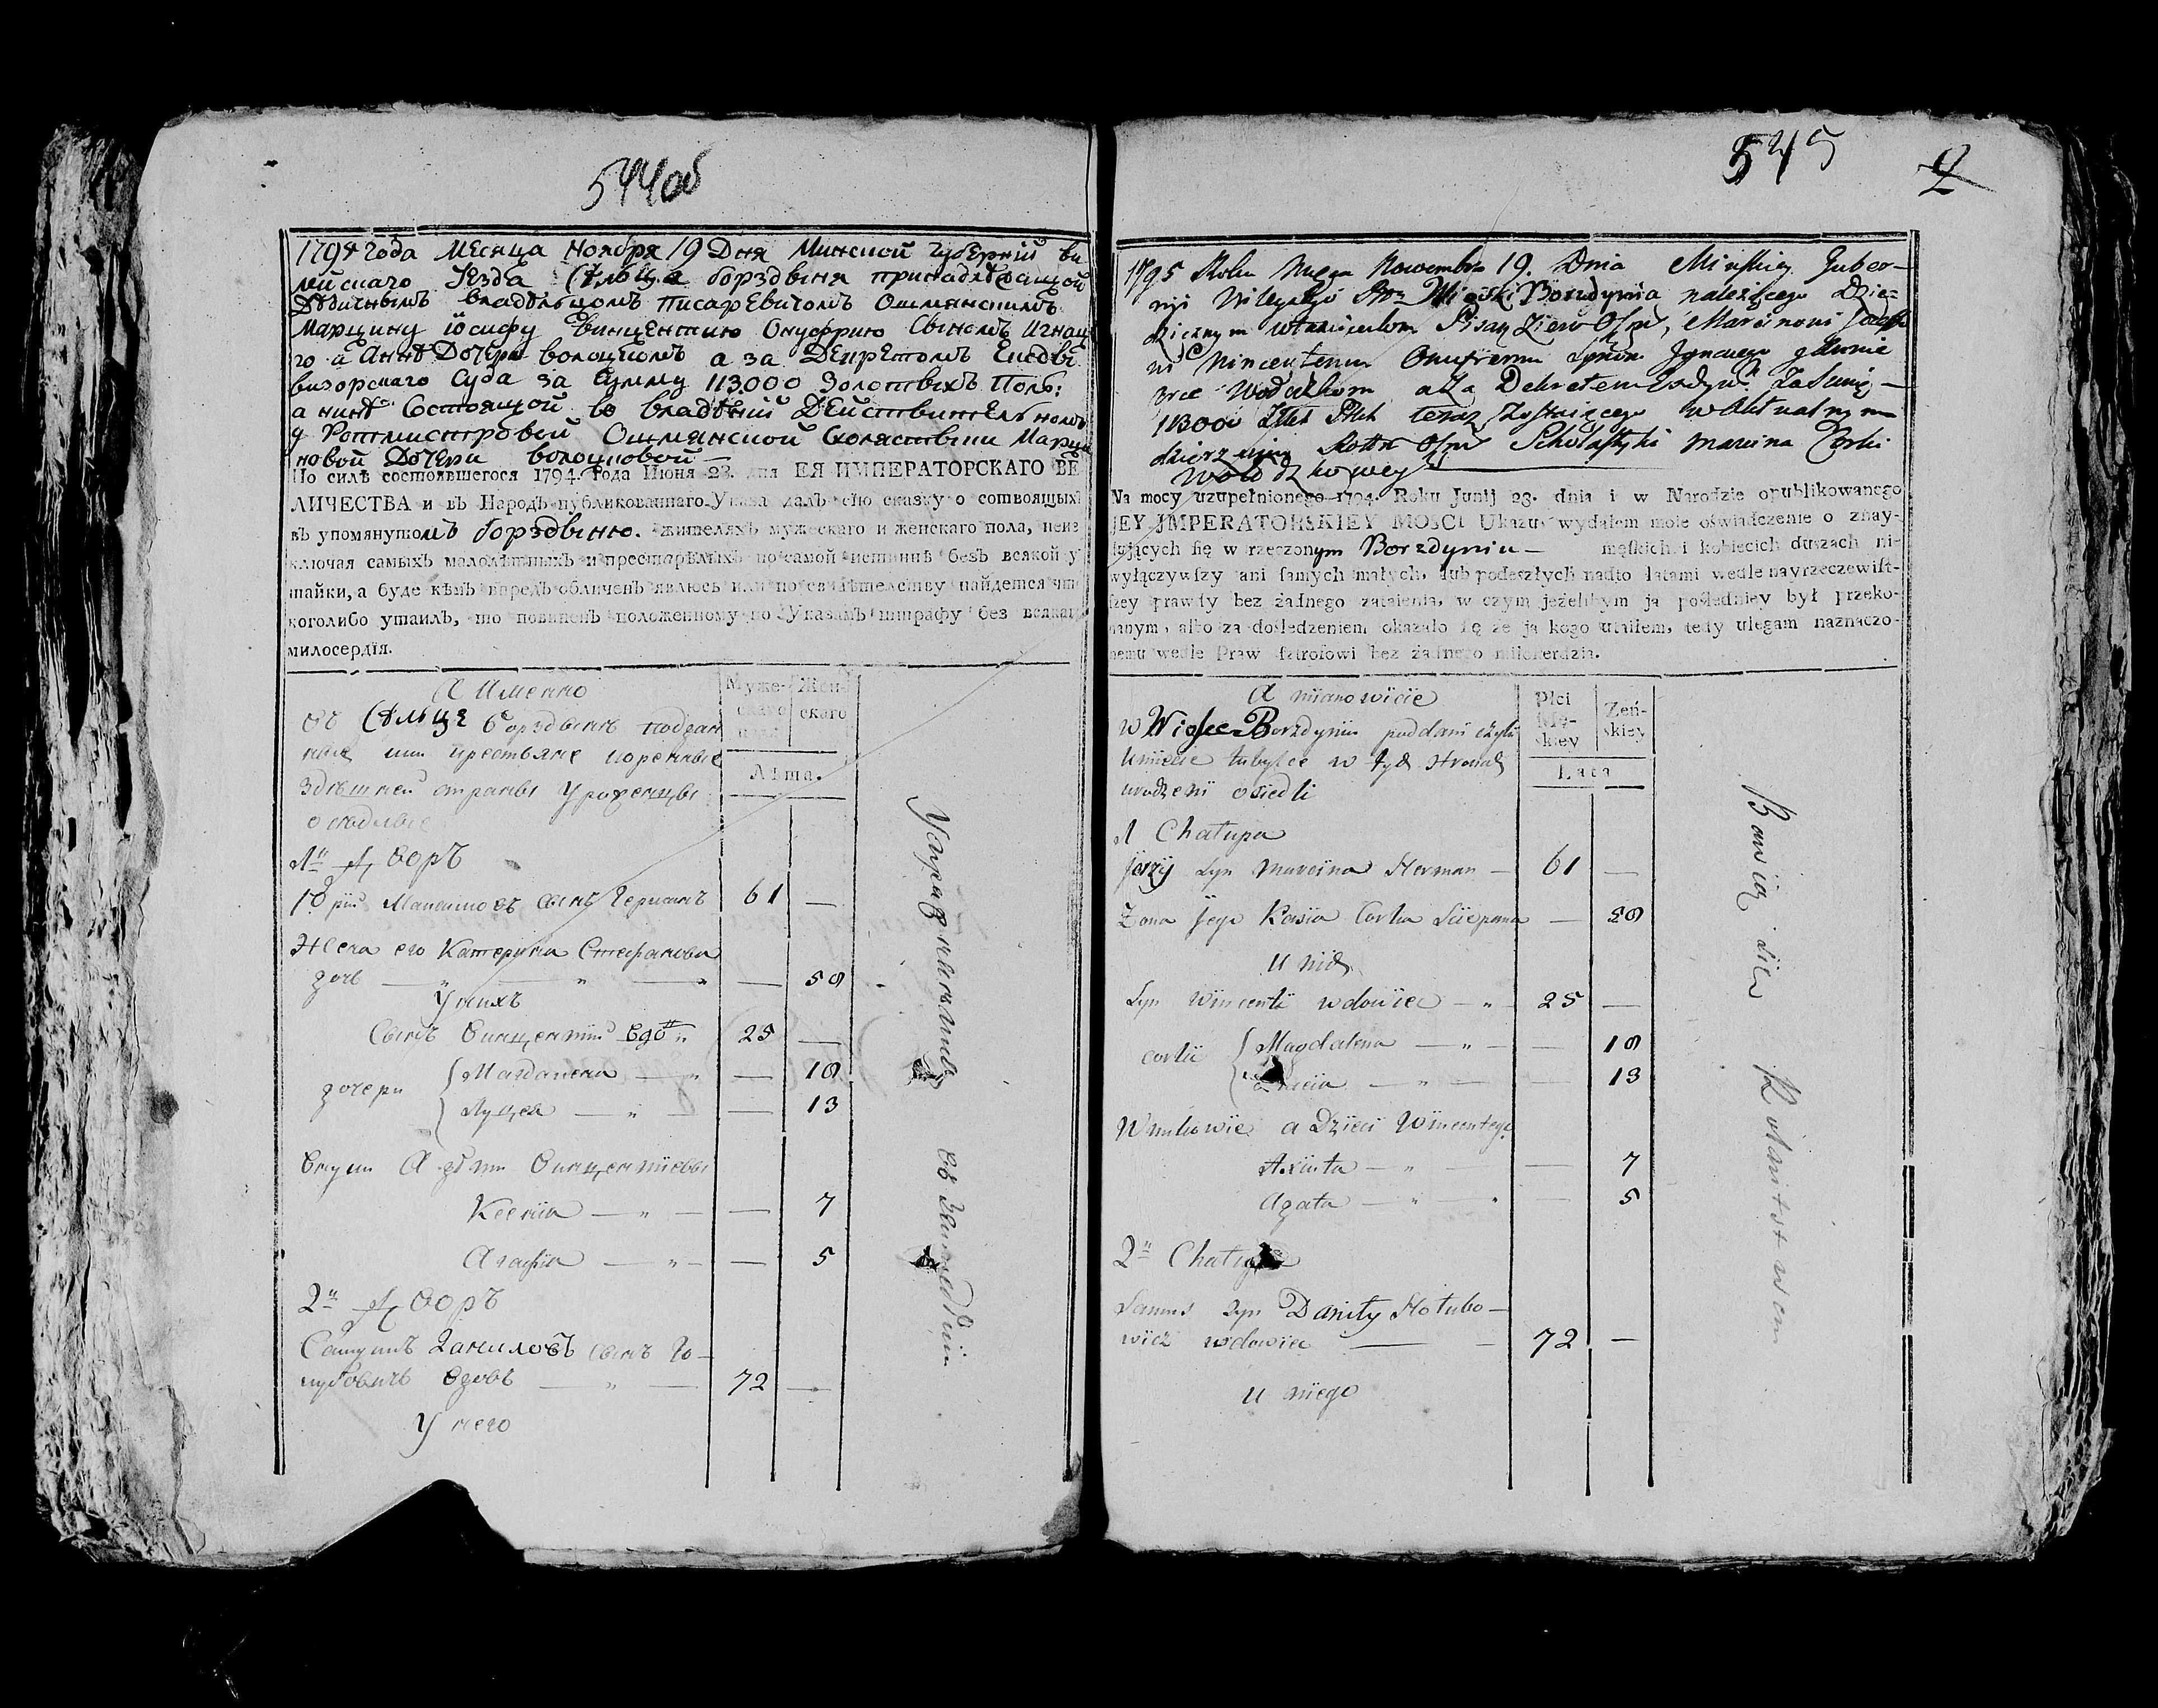 544об
1794 года Месяца Ноября 19 Дня Минской Губерний ви
лейскаго Уезда Сѣльца борздыня принадлежащой
Дѣдичнымъ владѣльцомъ писаревичомъ Ошмянскимъ
Марцину Иосифу Винцентию Онуфрию Сыномъ Игнац
го а Аннѣ Дочери волоцкомъ а за Декретомъ
визорскаго Суда за Сумму 113000 Золотыхъ Поль:
а нинѣ Состоящой во владѣний Дѣйствительномъ
у Ротмистровой Ошмянской Схоластыки Марци
новой Дочери волоцковой
По силѣ состоявшегося 1794. Года Июня 23. дня ЕЯ ИМПЕРАТОРСКАГО ВЕ
ЛИЧЕСТВА и въ Народъ публикованнаго Указа далъ сію сказку о сотвоящыхъ
въ упомянутомъ борздыню. жителяхъ мужескаго и женскаго пола, неиз
ключая самыхъ малолѣтныхъ и престарѣлыхъ по самой истиннѣ безъ всякой у
тайки, а буде кѣмъ передъ обличенъ явлюсь или по свидѣтелству найдется что
коголибо утаилъ, то повиненъ положенному по Указамъ штрафу без всякаго
милосердія.
А Именно
Мужескаго пола
Женскаго
въ Сѣльце борздынѣ поддан
ные или крестьяне коренные
здѣшней страны Уроженцы
оседлые
Лѣта.
1й Дворъ
Юрий Марциновъ сынъ Германъ 61 —
Жена его Катерина Стефанова
дочь — „ — „ — „ — 58
У нихъ
Сынъ Винцентий вдов „ 25 —
дочери Магдалена — „ — 18
Луцея — „ — 13
Внуки А дѣти Винцентиевы
Ксения — „ — — 7
Агафия — „ — — 5
2й Дворъ
Самуилъ Даниловъ сынъ Го-
лубовичъ вдовъ — „ — 72 —
У него
Упражняется въ Земледѣлии
545
2
1795 Roku Mca Nowembra 19. Dnia Minskiey Guber-
nij Wileyskiego Wioski Borzdynia należącego Dzie-
dzicznym własicielom Pisarzewiczom Oszm, Marcinowi Józefo
wi Wincentemu Onufremu synom Ignacego
Wołodzkom a Za Dekretem Za Summę
113000 Złch Plch teraz zostaiącego w Aktualnym
dzierzeniu Rotm Oszm Scholastyki Marcina Corki
Wołodzkowey
Na mocy uzupełnionego 1794. Roku Junij 23. dnia i w Narodzie opublikowanego
JEY JMPERATORSKIEY MOSCI Ukazu wydałem moie oświadczenie o znay-
duiących się w rzeczonym Borzdyniu — męskich i kobiecich duszach nie
wyłączywszy ani samych małych, lub podeszłych nadto latami wedle nayrzeczewist-
szey prawdy bez żadnego zataienia, w czym jeżelibym ja pośledniey był przeko-
nanym, albo za dośledzeniem okazało się że ja kogo utaiłem, tedy ulegam naznaczo-
nemu wedle Praw sztrofowi bez żadnego miłosierdzia.
A mianowicie
Płci Męskiey
Żeńskiey
w Wiosce Borzdyniu poddani czyli
kmiecie tubylce w tych stronach
urodzeni osiedli
Lata
1 Chałupa
Jerzy syn Marcina Herman — 61 —
Zona Jego Kasia Corka Sciepana — 58
U nich
Syn Wincenti wdowiec — „ — 25 —
corki Magdalena — „ — — 18
Łucija — „ — — 13
Wnukowie a Dzieci Wincentego
Axiuta — „ — — 7
Agata — „ — „ — 5
2 Chałupa
Samuś syn Daniły Hołubo-
wicz wdowiec — — 72 —
u niego
Bawią się Rolnitstwem